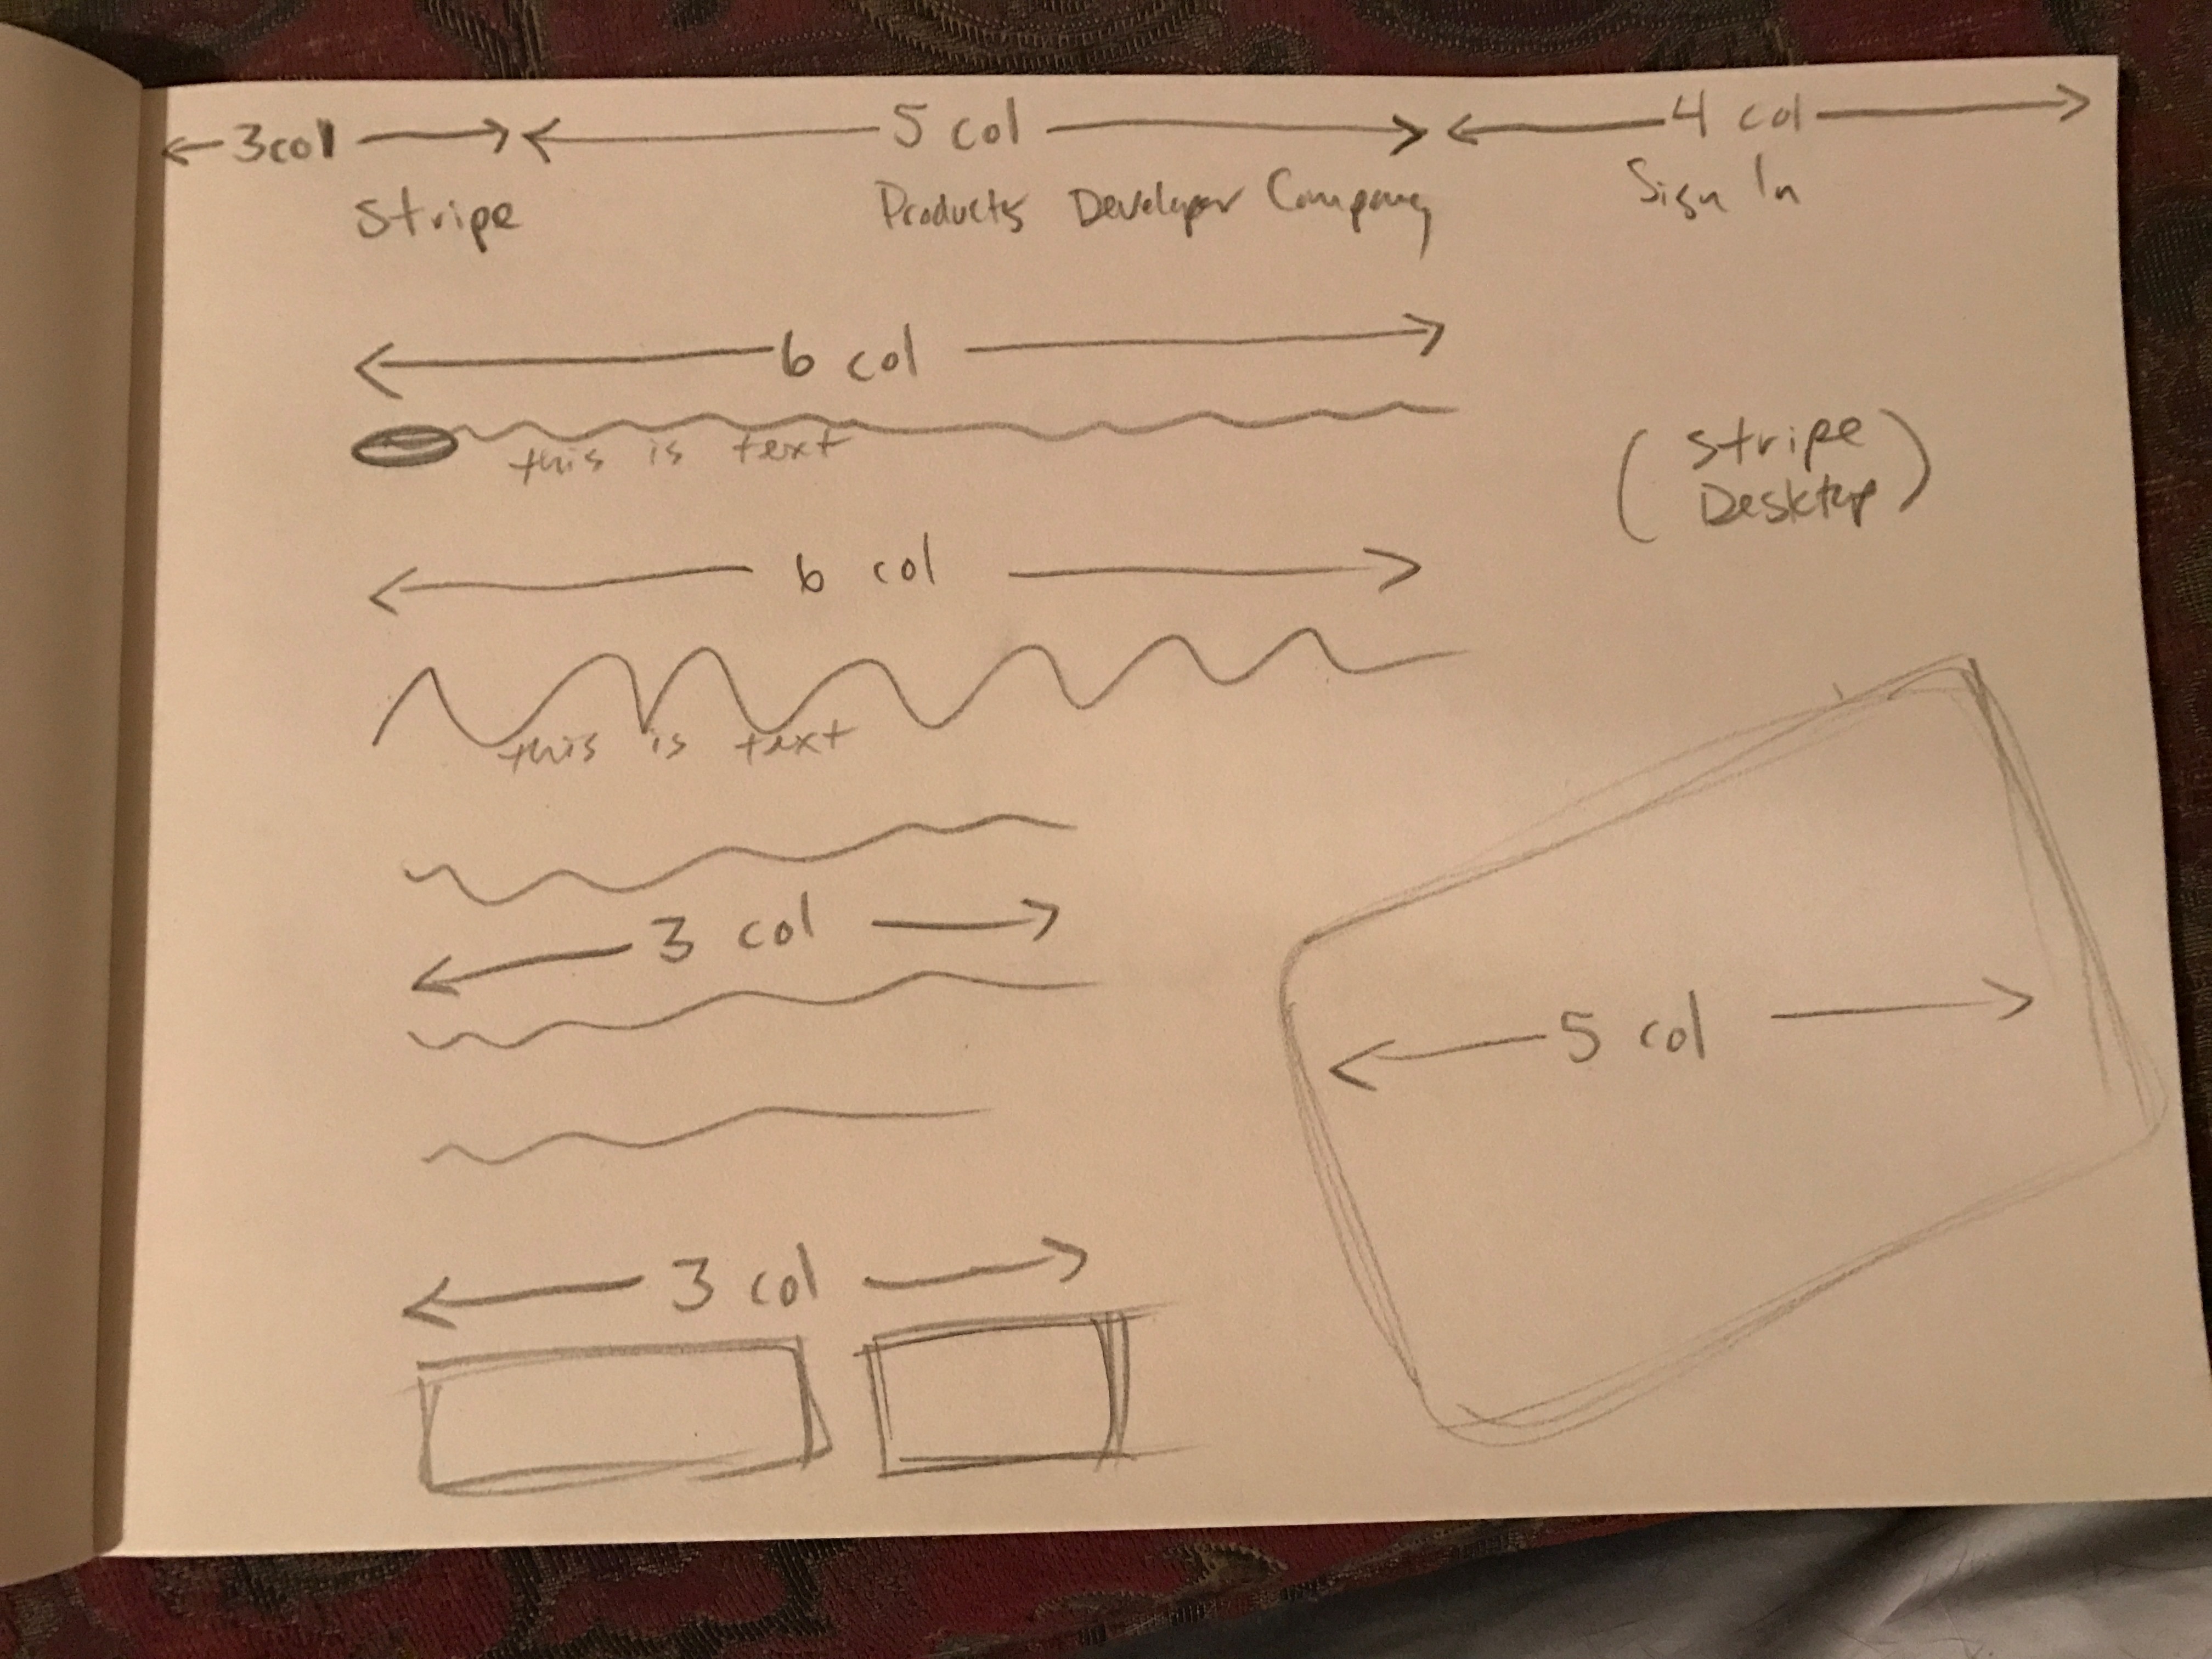 3col 5 col 4 col
Stripe Products Developer Company Sign In
6 col
this is text
(Stripe
Desktop)
6 col
this is text
3 col
5 col
3 col